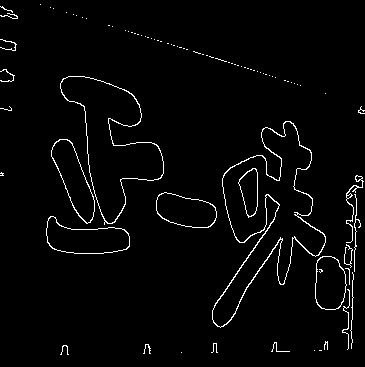 正一味